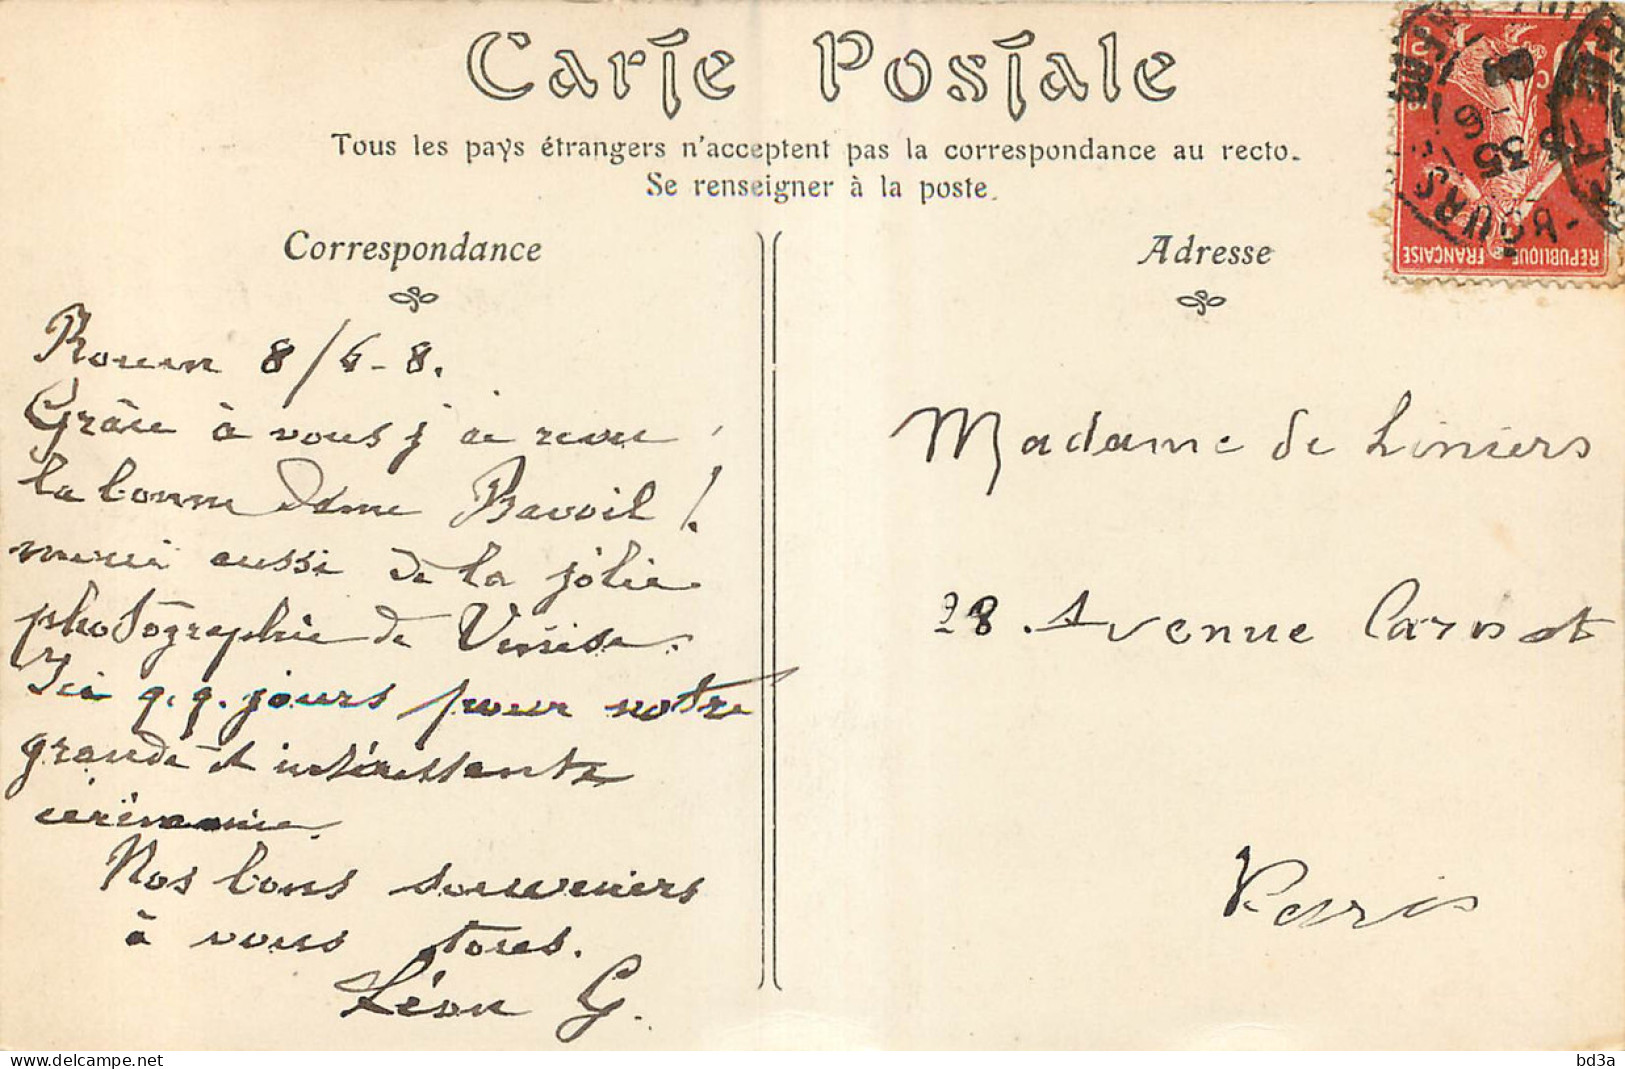 Carte Postale
Tous les pays étrangers n'acceptent pas la correspondance au recto.
Se renseigner à la poste.
Correspondance
Adresse
Rouen 8/6-8.
Grâce à vous j'ai revu
la bonne dame Bavoil !
merci aussi de la jolie
photographie de Venise.
Ici q.q. jours pour notre
grande et intéressante
cérémonie.
Nos bons souvenirs
à vous tous.
Léon G.
Madame de Liniers
28. Avenue Carnot
Paris
REPUBLIQUE FRANÇAISE
bd3a